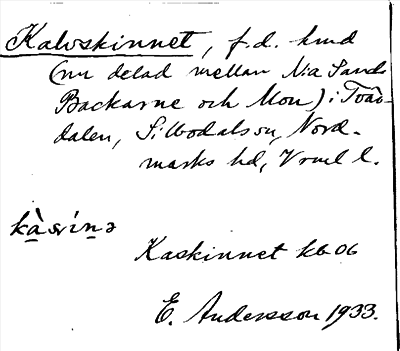 Kalvskinnet, f.d. hmd
(nu delad mellan Nia Sands
Backarne och Mon) i Tvär-
dalen, Silbodals sn, Nord-
marks hd, Vrml l.
kàsʃínə
Kaskinnet kb 06
E. Andersson 1933.